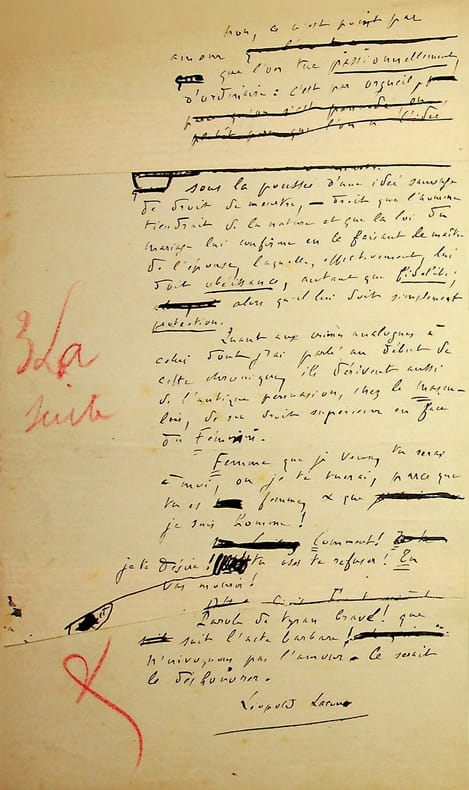 Non, ce n'est point par
amour
que l'on tue passionnellement,
d'ordinaire : c'est par orgueil,
sous la poussée d'une idée sauvage
de droit de meurtre, — droit que l'homme
tiendrait de la nature et que la loi du
mariage lui confirme en le faisant le maître
de l'épouse, laquelle, effectivement, lui
doit obéissance, autant que fidélité,
alors qu'il lui doit simplement
protection.
Quant aux crimes analogues à
celui dont j'ai parlé au début de
cette chronique, ils dérivent aussi
de l'antique persuasion, chez le Mascu-
lin, de son droit supérieur en face
du Féminin.
3 La
suite
Femme que je veux, tu seras
à moi, ou je te tuerai, parce que
tu es femme, & que
je suis l'homme !
Comment !
je te désire ! tu oses te refuser ! Tu
vas mourir !
Parole de tyran brave ! que
suit l'acte barbare !
N'invoquons pas l'amour. Ce serait
le déshonorer.
Léopold Lacour